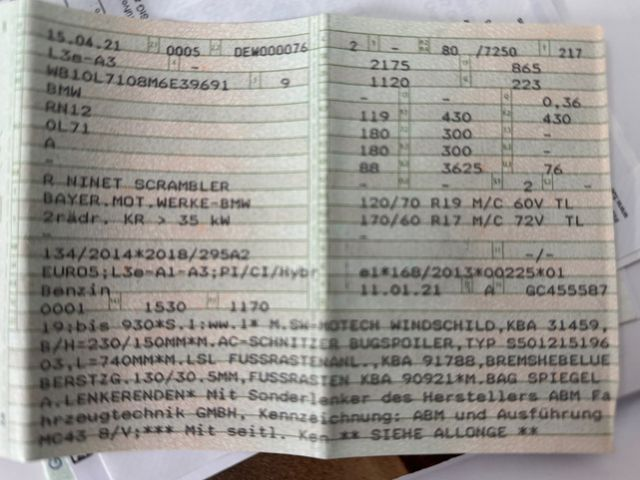 15.04.21 0005 DEW000076
L3e-A3 -
WB10L7108M6E39691 9
BMW
RN12
0L71
A
-
R NINET SCRAMBLER
BAYER.MOT.WERKE-BMW
2rädr. KR > 35 kW
-
134/2014*2018/295A2
EURO5;L3e-A1-A3;PI/CI/Hybr
Benzin
0001 1530 1170
2 - 80 /7250 217
2175 865
1120 223
- - 0,36
119 430 430
180 300 -
180 300 -
88 3625 76
- - 2 -
120/70 R19 M/C 60V TL
170/60 R17 M/C 72V TL
-
-/-
e1*168/2013*00225*01
11.01.21 A GC455587
19:bis 930*S.1:ww.1* M.SW-MOTECH WINDSCHILD,KBA 31459,
B/H=230/150MM*M.AC-SCHNITZER BUGSPOILER,TYP S501215196
03,L=740MM*M.LSL FUSSRASTENANL.,KBA 91788,BREMSHEBELUE
BERSTZG.130/30.5MM,FUSSRASTEN KBA 90921*M.BAG SPIEGEL
A.LENKERENDEN* Mit Sonderlenker des Herstellers ABM Fa
hrzeugtechnik GMBH, Kennzeichnung: ABM und Ausführung
MC43 8/V;*** Mit seitl. Ken ** SIEHE ALLONGE **